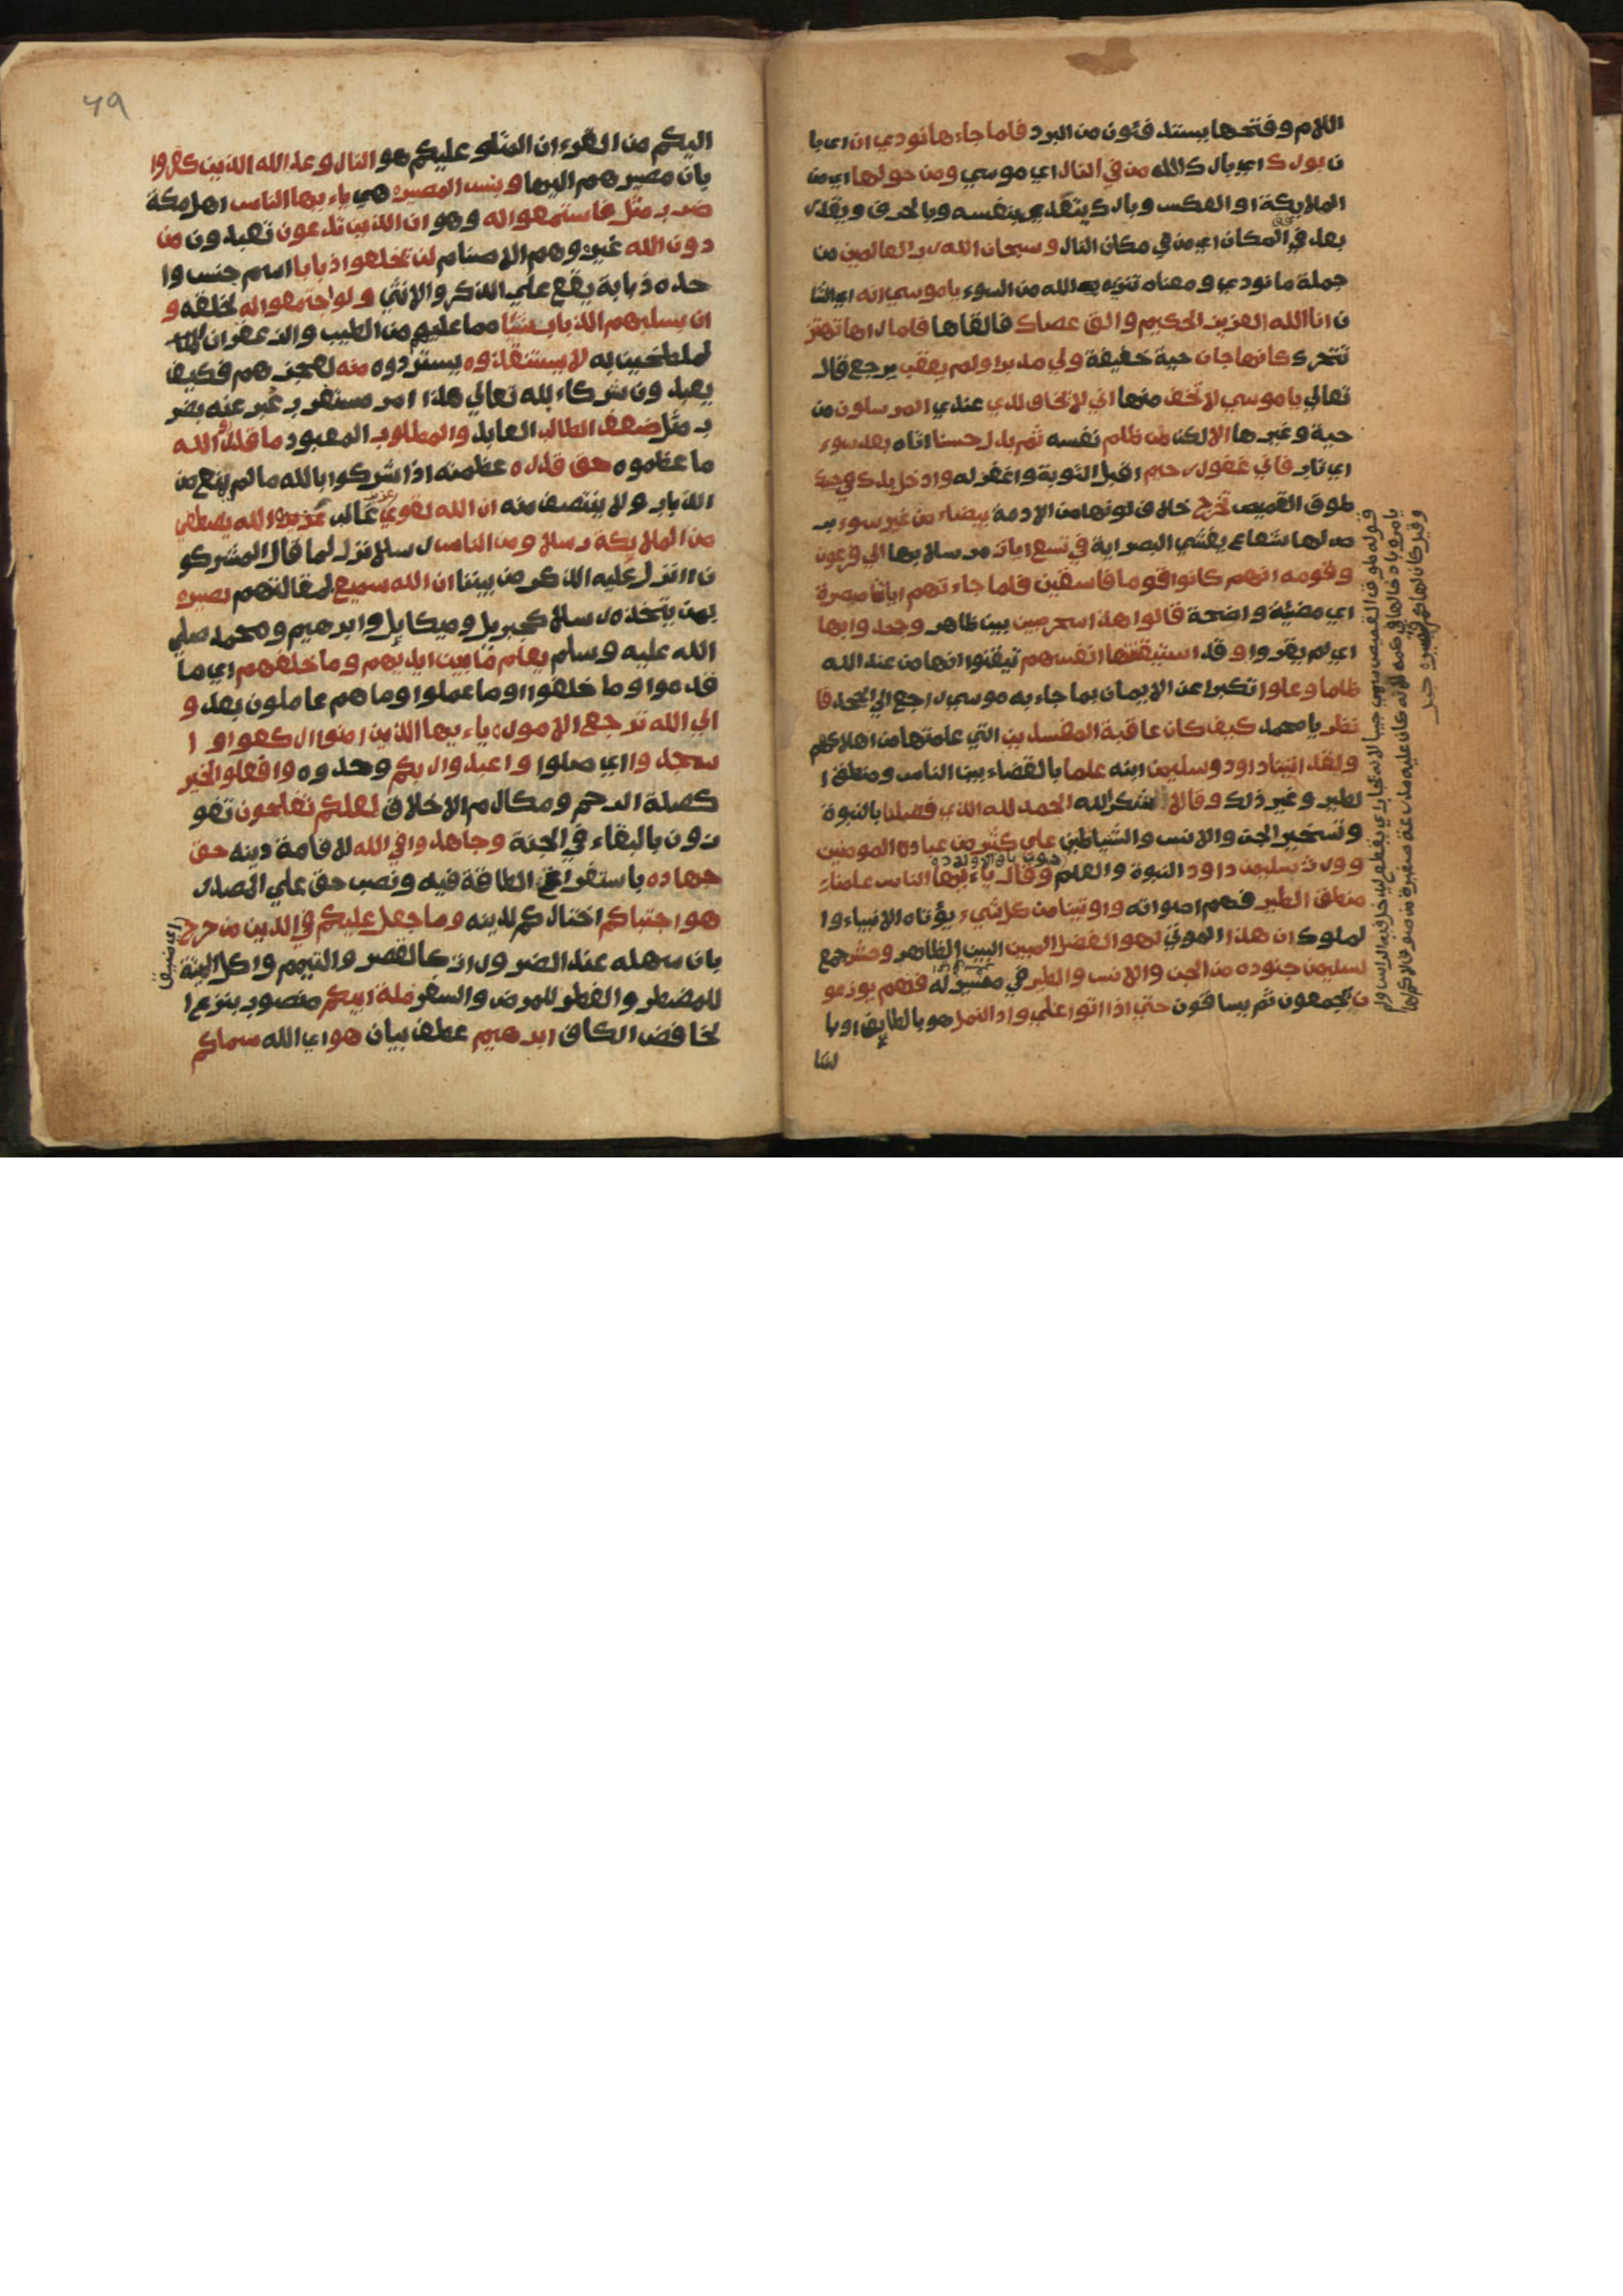 اللام وفتحها يستدفئون من البرد فلما جاءها نودي ان اي با
ن بورك اي بارك الله من في النار اي موسي ومن حولها اي من
الملايكة او العكس وبارك يتعدي بنفسه وبالحرف ويقدر
بعد في المكان اي من في مكان النار وسبحان الله رب العالمين من
جملة ما نودي ومعناه تنزيه الله من السوء ياموسي انه اي الشا
ن انا الله العزيز الحكيم والق عصاك فالقاها فلما راها تهتز
تتحرك كانها جان حية خفيفة ولي مدبرا ولم يعقب يرجع قال
تعالي ياموسي لا تخف منها اني لا يخاف لدي عندي المرسلون من
حية وغيرها الا لكن من ظلم نفسه ثم بدل حسنا اتاه بعد سوء
اي تاب فاني غفور رحيم اقبل التوبة واغفر له وادخل يدك في جيبك
طوق القميص تخرج خلاف لونها من الادمة بيضاء من غير سوء بر
ص لها شعاع يغشي البصر اية في تسع ايات مرسلا بها الي فرعون
وقومه انهم كانوا قوما فاسقين فلما جاءتهم اياتنا مبصرة
اي مضيئة واضحة قالوا هذا سحر مبين بين ظاهر وجحدوا بها
اي لم يقروا وقد استيقنتها انفسهم تيقنوا انها من عند الله
ظلما وعلوا تكبرا عن الايمان بما جاء به موسي راجع الي الجحد فا
نظر يا محمد كيف كان عاقبة المفسدين التي علمتها من اهلاكهم
ولقد اتينا داود وسليمن ابنه علما بالقضاء بين الناس ومنطق ا
لطير وغير ذلك وقالا شكرا لله الحمد لله الذي فضلنا بالنبوة
وتسخير الجن والانس والشياطين علي كثير من عباده المومنين
وورث سليمن داود النبوة والعلم وقال ياءيها الناس علمنا
منطق الطير فهم اصواته واوتينا من كل شيء يؤتاه الانبياء وا
لملوك ان هذا الموتي لهو الفضل المبين البين الظاهر وحشر جمع
لسليمن جنوده من الجن والانس والطير في مسير له فهم يوزعو
ن يجمعون ثم يساقون حتي اذا اتوا علي واد النمل هو بالطايف او با
لشا
اليكم من القرءان المتلو عليكم هو النار وعد الله الذين كفروا
بان مصيرهم اليها وبئس المصير هي ياءيها الناس اهل مكة
ضرب مثل فاستمعوا له وهو ان الذين تدعون تعبدون من
دون الله غيره وهم الاصنام لن يخلقوا ذبابا اسم جنس وا
حده ذبابة يقع علي الذكر والانثي ولو اجتمعوا له لخلقه و
ان يسلبهم الذباب شئا مما عليهم من الطيب والزعفران
لملطخين به لا يستنقذوه يستردوه منه لعجزهم فكيف
يعبدون شركاء لله تعالي هذا امر مستغرب عبر عنه بضر
ب مثل ضعف الطالب العابد والمطلوب المعبود ما قدروا الله
ما عظموه حق قدره عظمته اذ اشركوا بالله ما لم يمتنع من
الذباب ولا ينتصف منه ان الله لقوي عزيز غالب الله يصطفي
من الملايكة رسلا ومن الناس رسلا نزل لما قال المشركو
ن اانزل عليه الذكر من بيننا ان الله سميع لمقالتهم بصير
بمن يتخذه رسلا كجبريل وميكايل وابرهيم ومحمد صلي
الله عليه وسلم يعلم ما بين ايديهم وما خلفهم اي ما
قدموا وما خلفوا او ما عملوا وما هم عاملون بعد و
الي الله ترجع الامور ياءيها الذين امنوا اركعوا و ا
سجدوا اي صلوا واعبدوا ربكم وحدوه وافعلوا الخير
كصلة الرحم ومكارم الاخلاق لعلكم تفلحون تفو
زون بالبقاء في الجنة وجاهدوا في الله لاقامة دينه حق
جهاده باستفراغ الطاقة فيه ونصب حق علي المصدر
هو اجتباكم اختاركم لدينه وما جعل عليكم في الدين من حرج
اي ضيق
بان سهله عند الضرورات كالقصر والتيمم واكل الميتة
للمضطر والفطر للمرض والسفر ملة ابيكم منصوب بنزع ا
لخافض الكاف ابرهيم عطف بيان هو اي الله سماكم